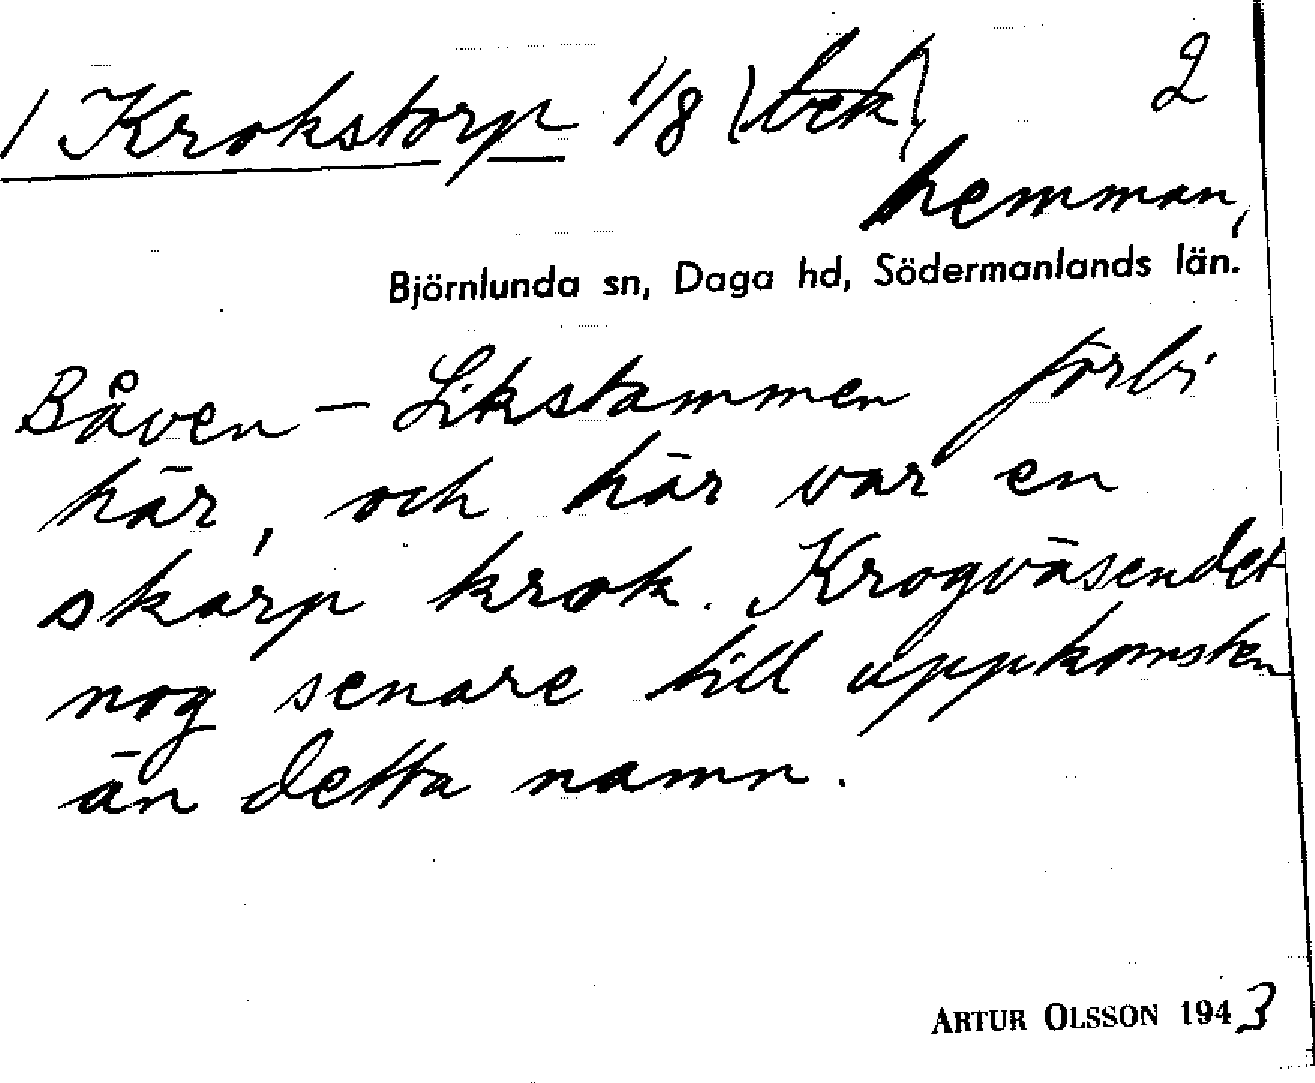 / Krokstorp 1/8 (bek) 2
hemman,
Björnlunda sn, Daga hd, Södermanlands län.
Båven - Likstammen förbi
här, och här var en
skarp krok. Krogväsendet
nog senare till uppkomsten
än detta namn.
ARTUR OLSSON 1943